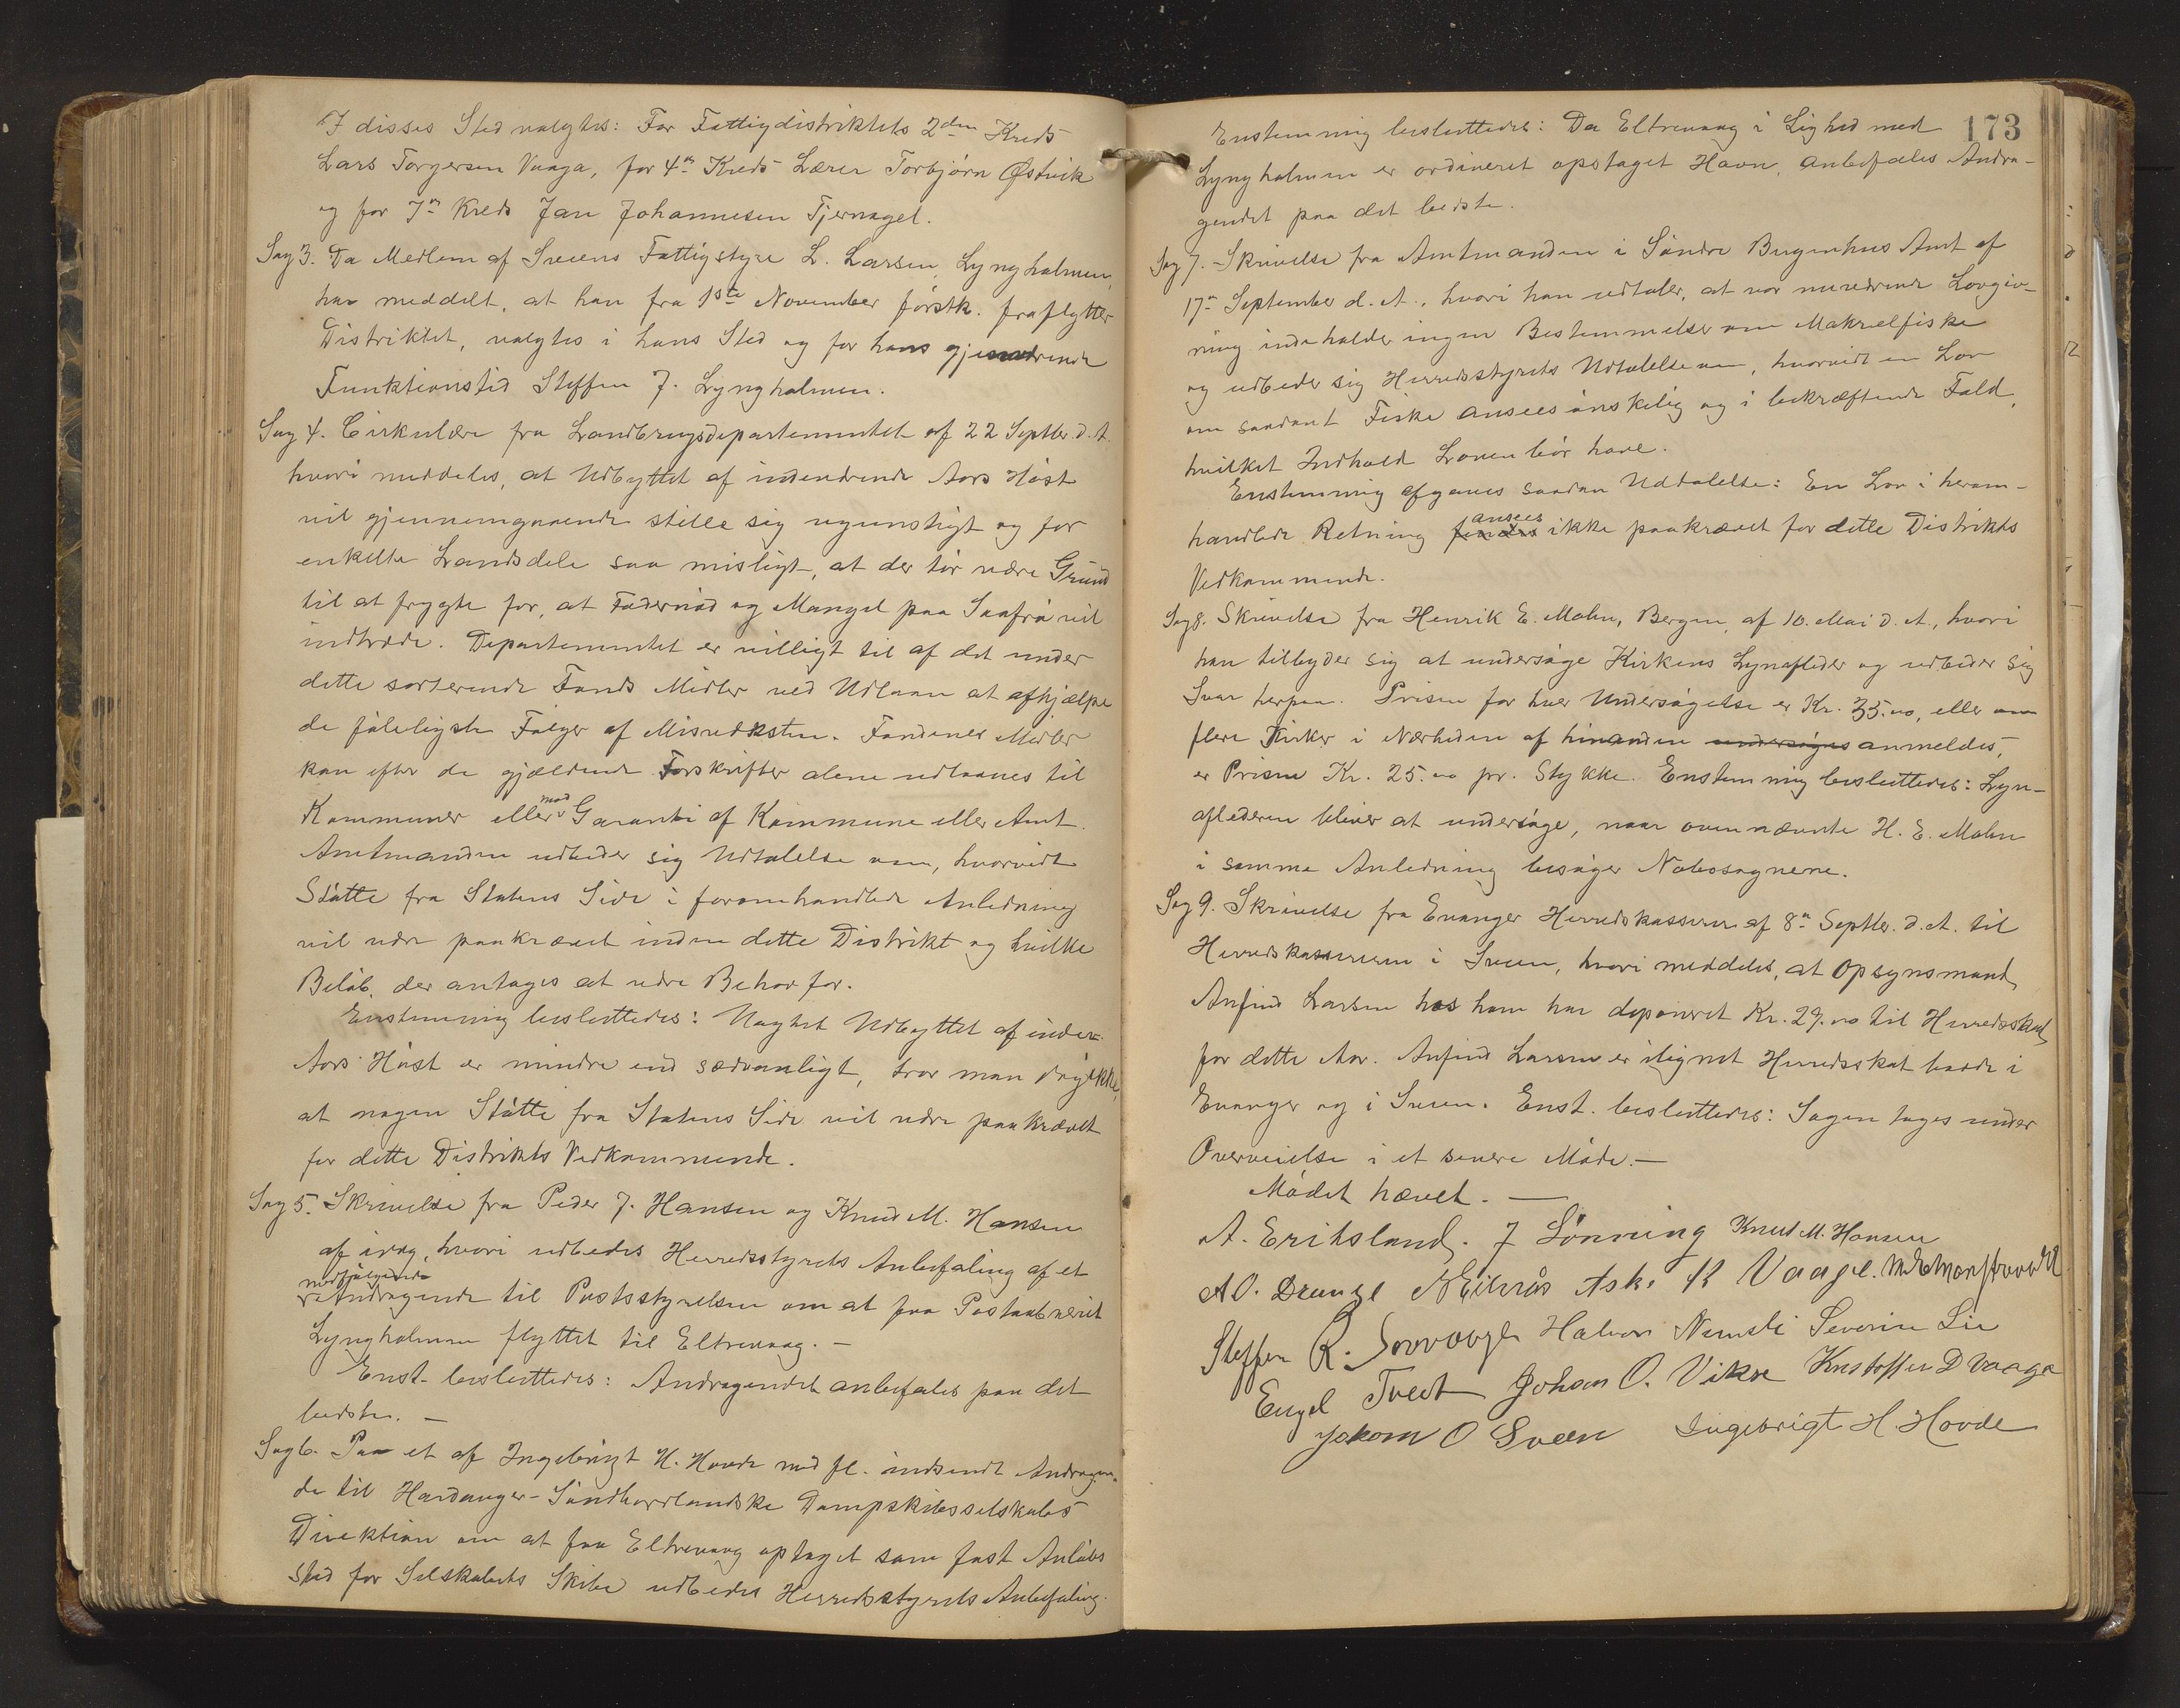 I disses Sted valgtes: For Fattigdistriktets 2den Kreds
Lars Torgersen Vaaga, for 4n Kreds Lærer Torbjørn Østvik
og for 7n Kreds Jan Johannesen Tjernagel.
Sag 3. Da Medlem af Sveens Fattigstyre L. Larsen, Lyngholmen,
har meddelt, at han fra 1ste November førstk. fraflytter
Distriktet, valgtes i hans Sted og for hans gjenværende
Funktionstid Steffen J. Lyngholmen.
Sag 4. Cirkulære fra Landbrugsdepartementet af 22 Septbr. d. A.
hvori meddeles, at Udbyttet af indeværende Aars Høst
vil gjennemgaaende stille sig ugunstigt og for
enkelte Landsdele saa misligt, at der tør være Grund
til at frygte for, at Fodernød og Mangel paa Saafrø vil
indtræde. Departementet er villigt til af det under
dette sorterende Fonds Midler ved Udlaan at afhjælpe
de føleligste Følger af Misvæksten. Fondenes Midler
kan efter de gjældende Forskrifter alene udlaanes til
Kommuner eller mod Garanti af Kommune eller Amt.
Amtmanden udbeder sig Udtalelse om, hvorvidt
Støtte fra Statens Side i foromhandlede Anledning
vil være paakrævet inden dette Distrikt og hvilke
Beløb, der antages at være Behov for.
Enstemmig besluttedes: Uagtet Udbyttet af indev.
Aars Høst er mindre end sædvanligt, tror man dog ikke,
at nogen Støtte fra Statens Side vil være paakrævet
for dette Distrikts Vedkommende.
Sag 5. Skrivelse fra Peder J. Hansen og Knud M. Hansen
af idag, hvori udbedes Herredsstyrets Anbefaling af et
medfølgende
Andragende til Poststyrelsen om at faa Postaabneriet
Lyngholmen flyttet til Eltrevaag. —
Enst. besluttedes: Andragendet anbefales paa det
bedste. —
Sag 6. Paa et af Ingebrigt H. Hovde med fl. indsendt Andragen-
de til Hardanger-Søndhordlandske Dampskibsselskabs
Direktion om at faa Eltrevaag optaget som fast Anløbs
sted for Selskabets Skibe udbedes Herredsstyrets Anbefaling.
173
Enstemmig besluttedes: Da Eltrevaag i Lighed med
Lyngholmen er ordineret opstaget Havn, anbefales Andra-
gendet paa det bedste.
Sag 7. Skrivelse fra Amtmanden i Søndre Bergenhus Amt af
17n September d. A., hvori han udtaler, at vor nuværende Lovgiv-
ning indeholder ingen Bestemmelse om Makrelfiske
og udbeder sig Herredsstyrets Udtalelse om, hvorvidt en Lov
om saadant Fiske ansees ønskelig og i bekræftende Fald,
hvilket Indhold Loven bør have.
Enstemmig afgaves saadan Udtalelse: En Lov i herom-
handlede Retning findes ansees ikke paakrævet for dette Distrikts
Vedkommende.
Sag 8. Skrivelse fra Henrik E. Mohn, Bergen, af 10. Mai d. A., hvori
han tilbyder sig at undersøge Kirkens Lynafleder og udbeder sig
Svar herpaa. Prisen for hver Undersøgelse er Kr. 35.00, eller om
flere Kirker i Nærheden af hinanden undersøges anmeldes,
er Prisen Kr. 25.00 pr. Stykke. Enstemmig besluttedes: Lyn-
aflederen bliver at undersøge, naar ovennævnte H. E. Mohn
i samme Anledning besøger Nabosognerne.
Sag 9. Skrivelse fra Evanger Herredskasserer af 8n Septbr. d. A. til
Herredskassereren i Sveen, hvori meddeles, at Opsynsmand
Anfind Larsen hos ham har deponeret Kr. 29.00 til Herredsskat
for dette Aar. Anfind Larsen er ilignet Herredsskat baade i
Evanger og i Sveen. Enst. besluttedes: Sagen tages under
Overveielse i et senere Møde. —
Mødet hævet. —
A. Eriksland. J Lønning Knud M. Hansen
A O. Drange Aske K Vaage.
Steffen R. Halvor Nernsti Severin Lie
Engel Tveit Johan O. Vikse Kristoffer D Vaaga
Jokom O Sveen Ingebrigt H. Hovde